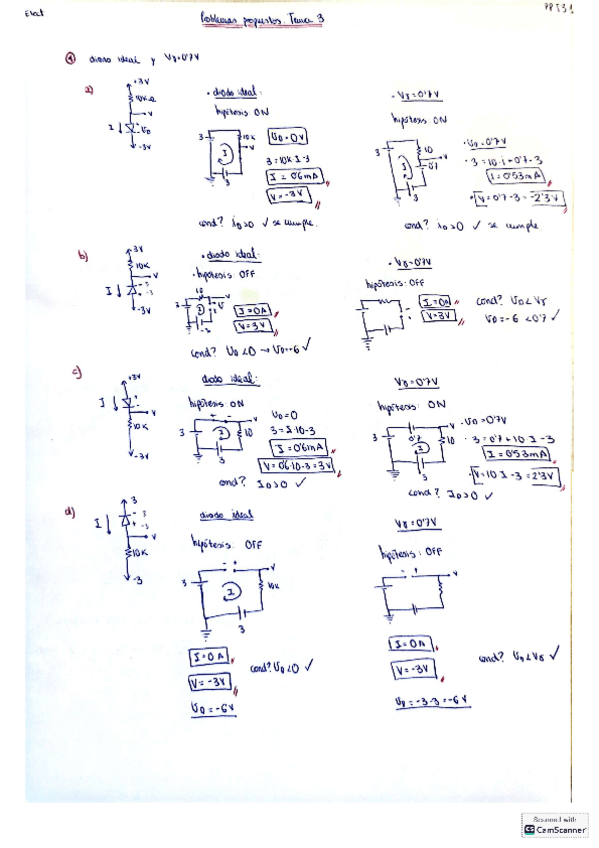 Elect
PPT3.1
Problemas propuestos. Tema 3
① diodo ideal y Vγ=0'7V
a)
+3V
10KΩ
V
I ↓
VD
-3V
• diodo ideal:
hipótesis ON
3
10K
V
I
3
VD=0V
3=10K·I-3
I=0'6mA
V=-3V
cond? iD>0 ✓ se cumple
• Vγ=0'7V
hipótesis ON
3
10
V
0'7
I
3
• VD=0'7V
• 3=10·i+0'7-3
I=0'53mA
• V=0'7-3=-2'3V
cond? iD>0 ✓ se cumple
b)
+3V
10K
V
I ↓
+ -3
- 3
-3V
• diodo ideal:
• hipótesis: OFF
3
10
V
I
3
I=0A
V=3V
cond? VD<0 → VD=-6 ✓
• Vγ=0'7V
hipótesis: OFF
3
V
I=0A
V=3V
cond? VD<Vγ
VD=-6<0'7 ✓
c)
+3V
I ↓
V
10K
-3V
diodo ideal:
hipótesis: ON
3
+ -
V
I
10
3
VD=0
3=I·10-3
I=0'6mA
V=0'6·10-3=3V
cond? ID>0 ✓
Vγ=0'7V
hipótesis: ON
3
0'7
V
I
10
3
• VD=0'7V
• 3=0'7+10I-3
I=0'53mA
• V=10I-3=2'3V
cond? ID>0 ✓
d)
3
I ↓
- 3
+ -3
V
10K
-3
diodo ideal
hipótesis: OFF
3
- +
V
I
10K
3
I=0A
V=-3V
VD=-6V
cond? VD<0 ✓
Vγ=0'7V
hipótesis: OFF
- +
V
I=0A
V=-3V
VD=-3-3=-6V
cond? VD<Vγ ✓
Scanned with
CS CamScanner